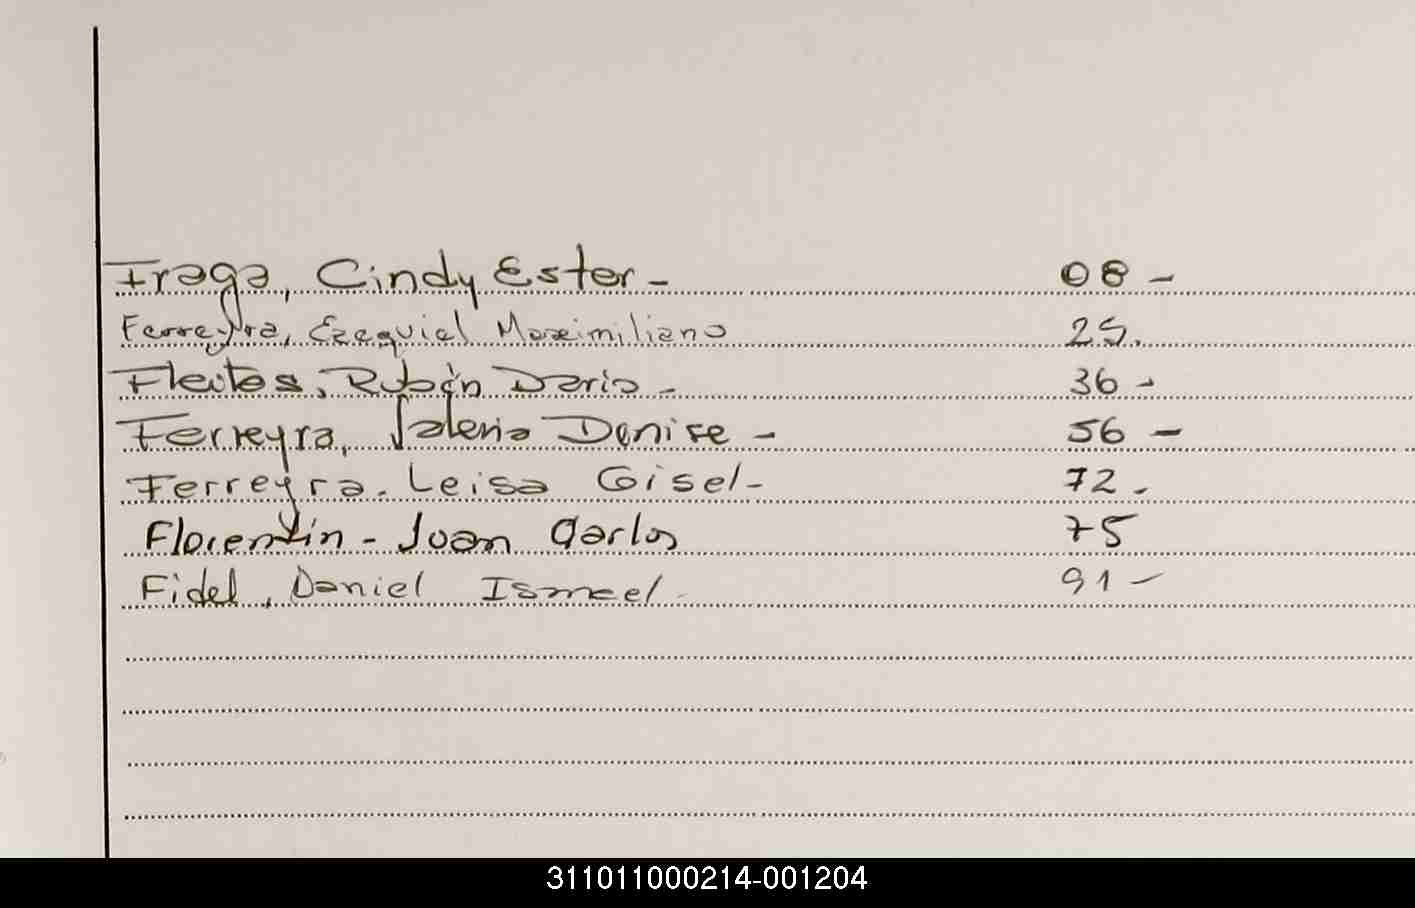 Fraga, Cindy Ester - 08 -
Ferreyra, Ezequiel Maximiliano 25.
Fleitas, Rubén Dario - 36 -
Ferreyra, Valeria Denise - 56 -
Ferreyra. Leisa Gisel - 72.
Florentin - Juan Carlos 75
Fidel, Daniel Ismael - 91 -
311011000214-001204